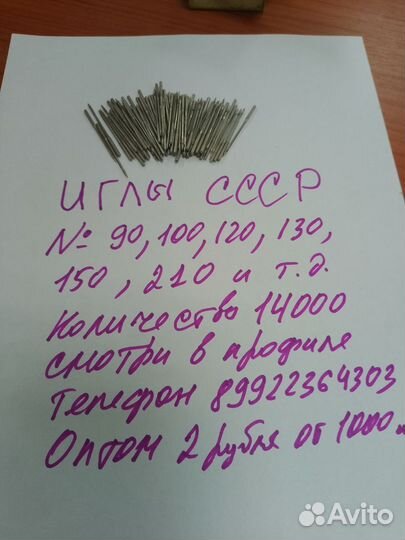 ИГЛЫ СССР
№ 90, 100, 120, 130,
150, 210 и т.д.
Количество 14000
смотри в профиле
Телефон 89922364303
Оптом 2 рубля от 1000
Avito